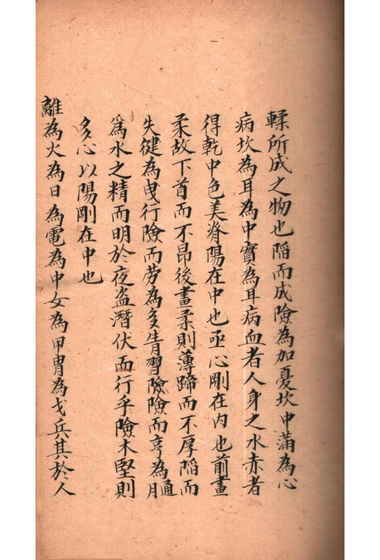 輮所成之物也陷而成險為加憂坎中滿為心
病坎為耳為中實為耳病血者人身之水赤者
得乾中色美脊陽在中也亟心剛在内也前畫
柔故下首而不昂後畫柔則薄蹄而不厚陷而
失健為曳行險而劳為多眚習險險而亨為通月
為水之精而明於夜盗潛伏而行乎險木堅則
多心以陽剛在中也
離為火為日為電為中女為甲冑為戈兵其於人